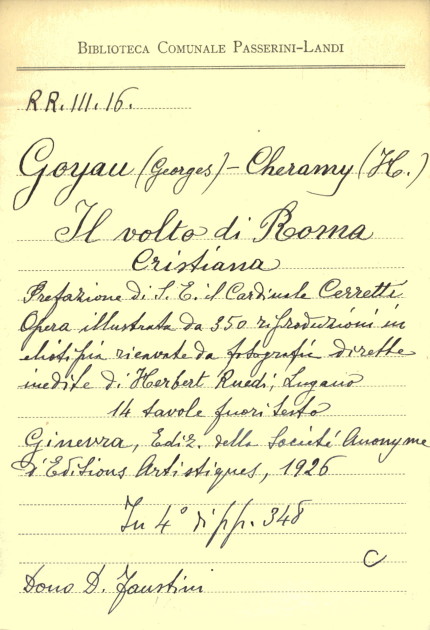 Biblioteca Comunale Passerini-Landi
RR.III.16.
Goyau (Georges) - Cheramy (H.)
Il volto di Roma
Cristiana
Prefazione di S. E. il Cardinale Cerretti
Opera illustrata da 350 riproduzioni in
eliotipia ricavate da fotografie dirette
inedite di Herbert Ruedi, Lugano
14 tavole fuori testo
Ginevra, Ediz. della Societé Anonyme
d'Editions Artistiques, 1926
In 4° di pp. 348
C
Dono D. Faustini